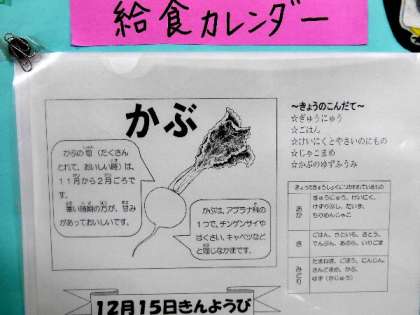 給食カレンダー
かぶ
かぶの旬（たくさん
とれて、おいしい時）は、
11月から2月ごろで
す。
寒い時期の方が、甘み
があっておいしいです。
かぶは、アブラナ科の
1つで、チンゲンサイや
はくさい、キャベツなど
と同じなかまです。
12月15日きんようび
～きょうのこんだて～
☆ぎゅうにゅう
☆ごはん
☆けいにくとやさいのにもの
☆じゃこまめ
☆かぶのゆずふうみ
あか
ぎゅうにゅう、けいにく、
けずりぶし、だいず、
ちりめんじゃこ
き
ごはん、さといも、さとう、
でんぷん、あぶら、いりごま
みどり
たまねぎ、ごぼう、にんじん、
さんどまめ、かぶ、
ゆず（かじゅう）